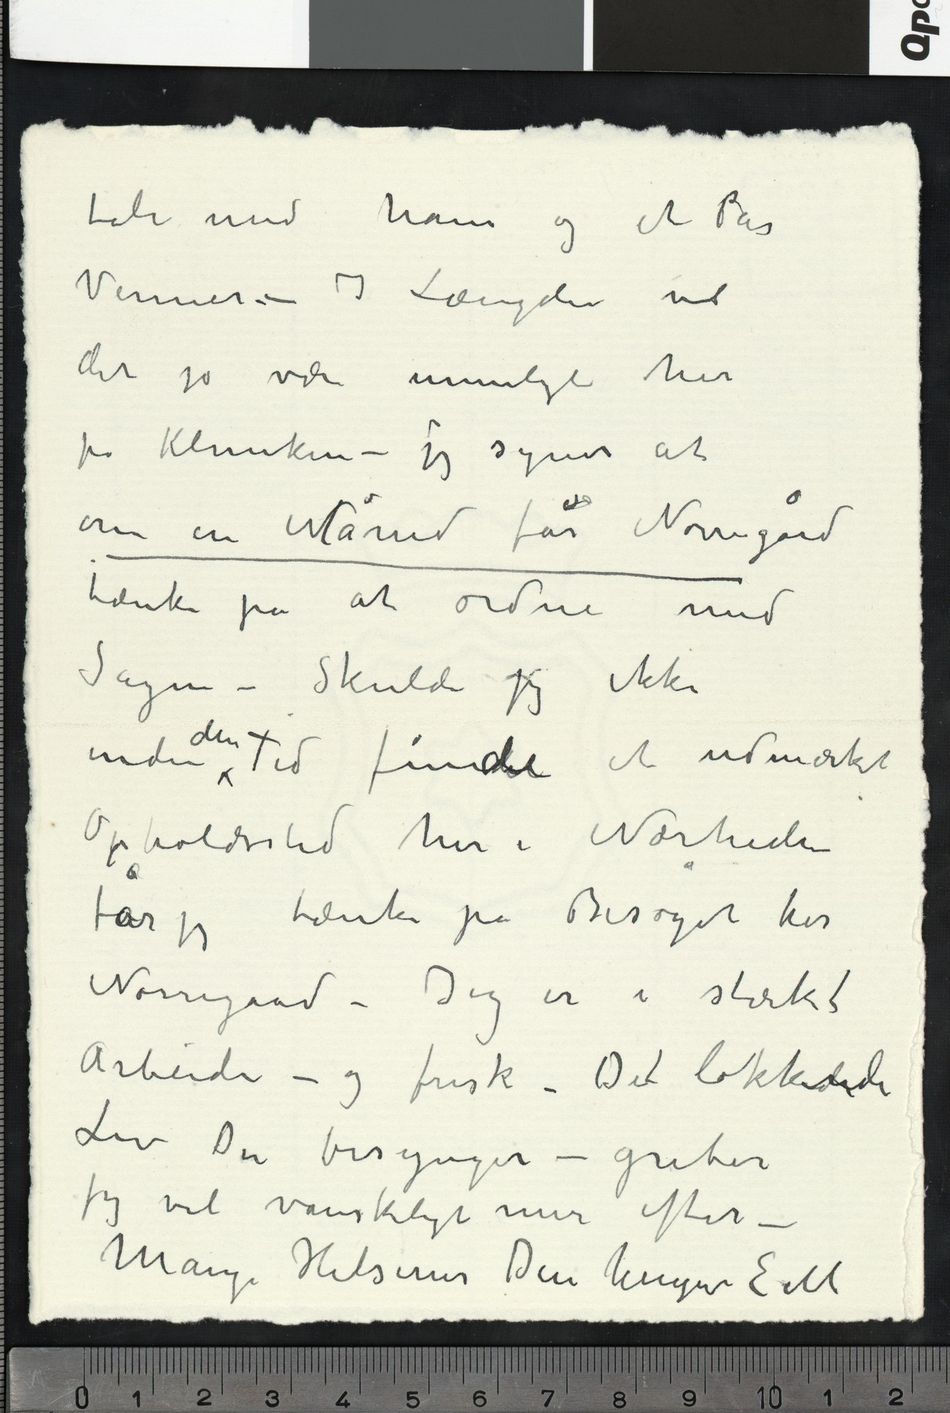 tale med ham og et Par
Venner.— I Længden vil
det jo være umuligt her
på Kliniken — jeg synes at
om en Måned får Nørregård
tænke på at ordne med
Sagen — Skulde jeg ikke
inden den Tid findet et udmærket
Opholdssted her i Nærheden
får jeg tænke på Besøget hos
Nørregaard — Jeg er i stærkt
Arbeide — og frisk — Det lokkedede
Liv Du besynger — griber
jeg vel vanskeligt mer efter —
Mange Hilsener Din hengivne E M
0 1 2 3 4 5 6 7 8 9 10 1 2